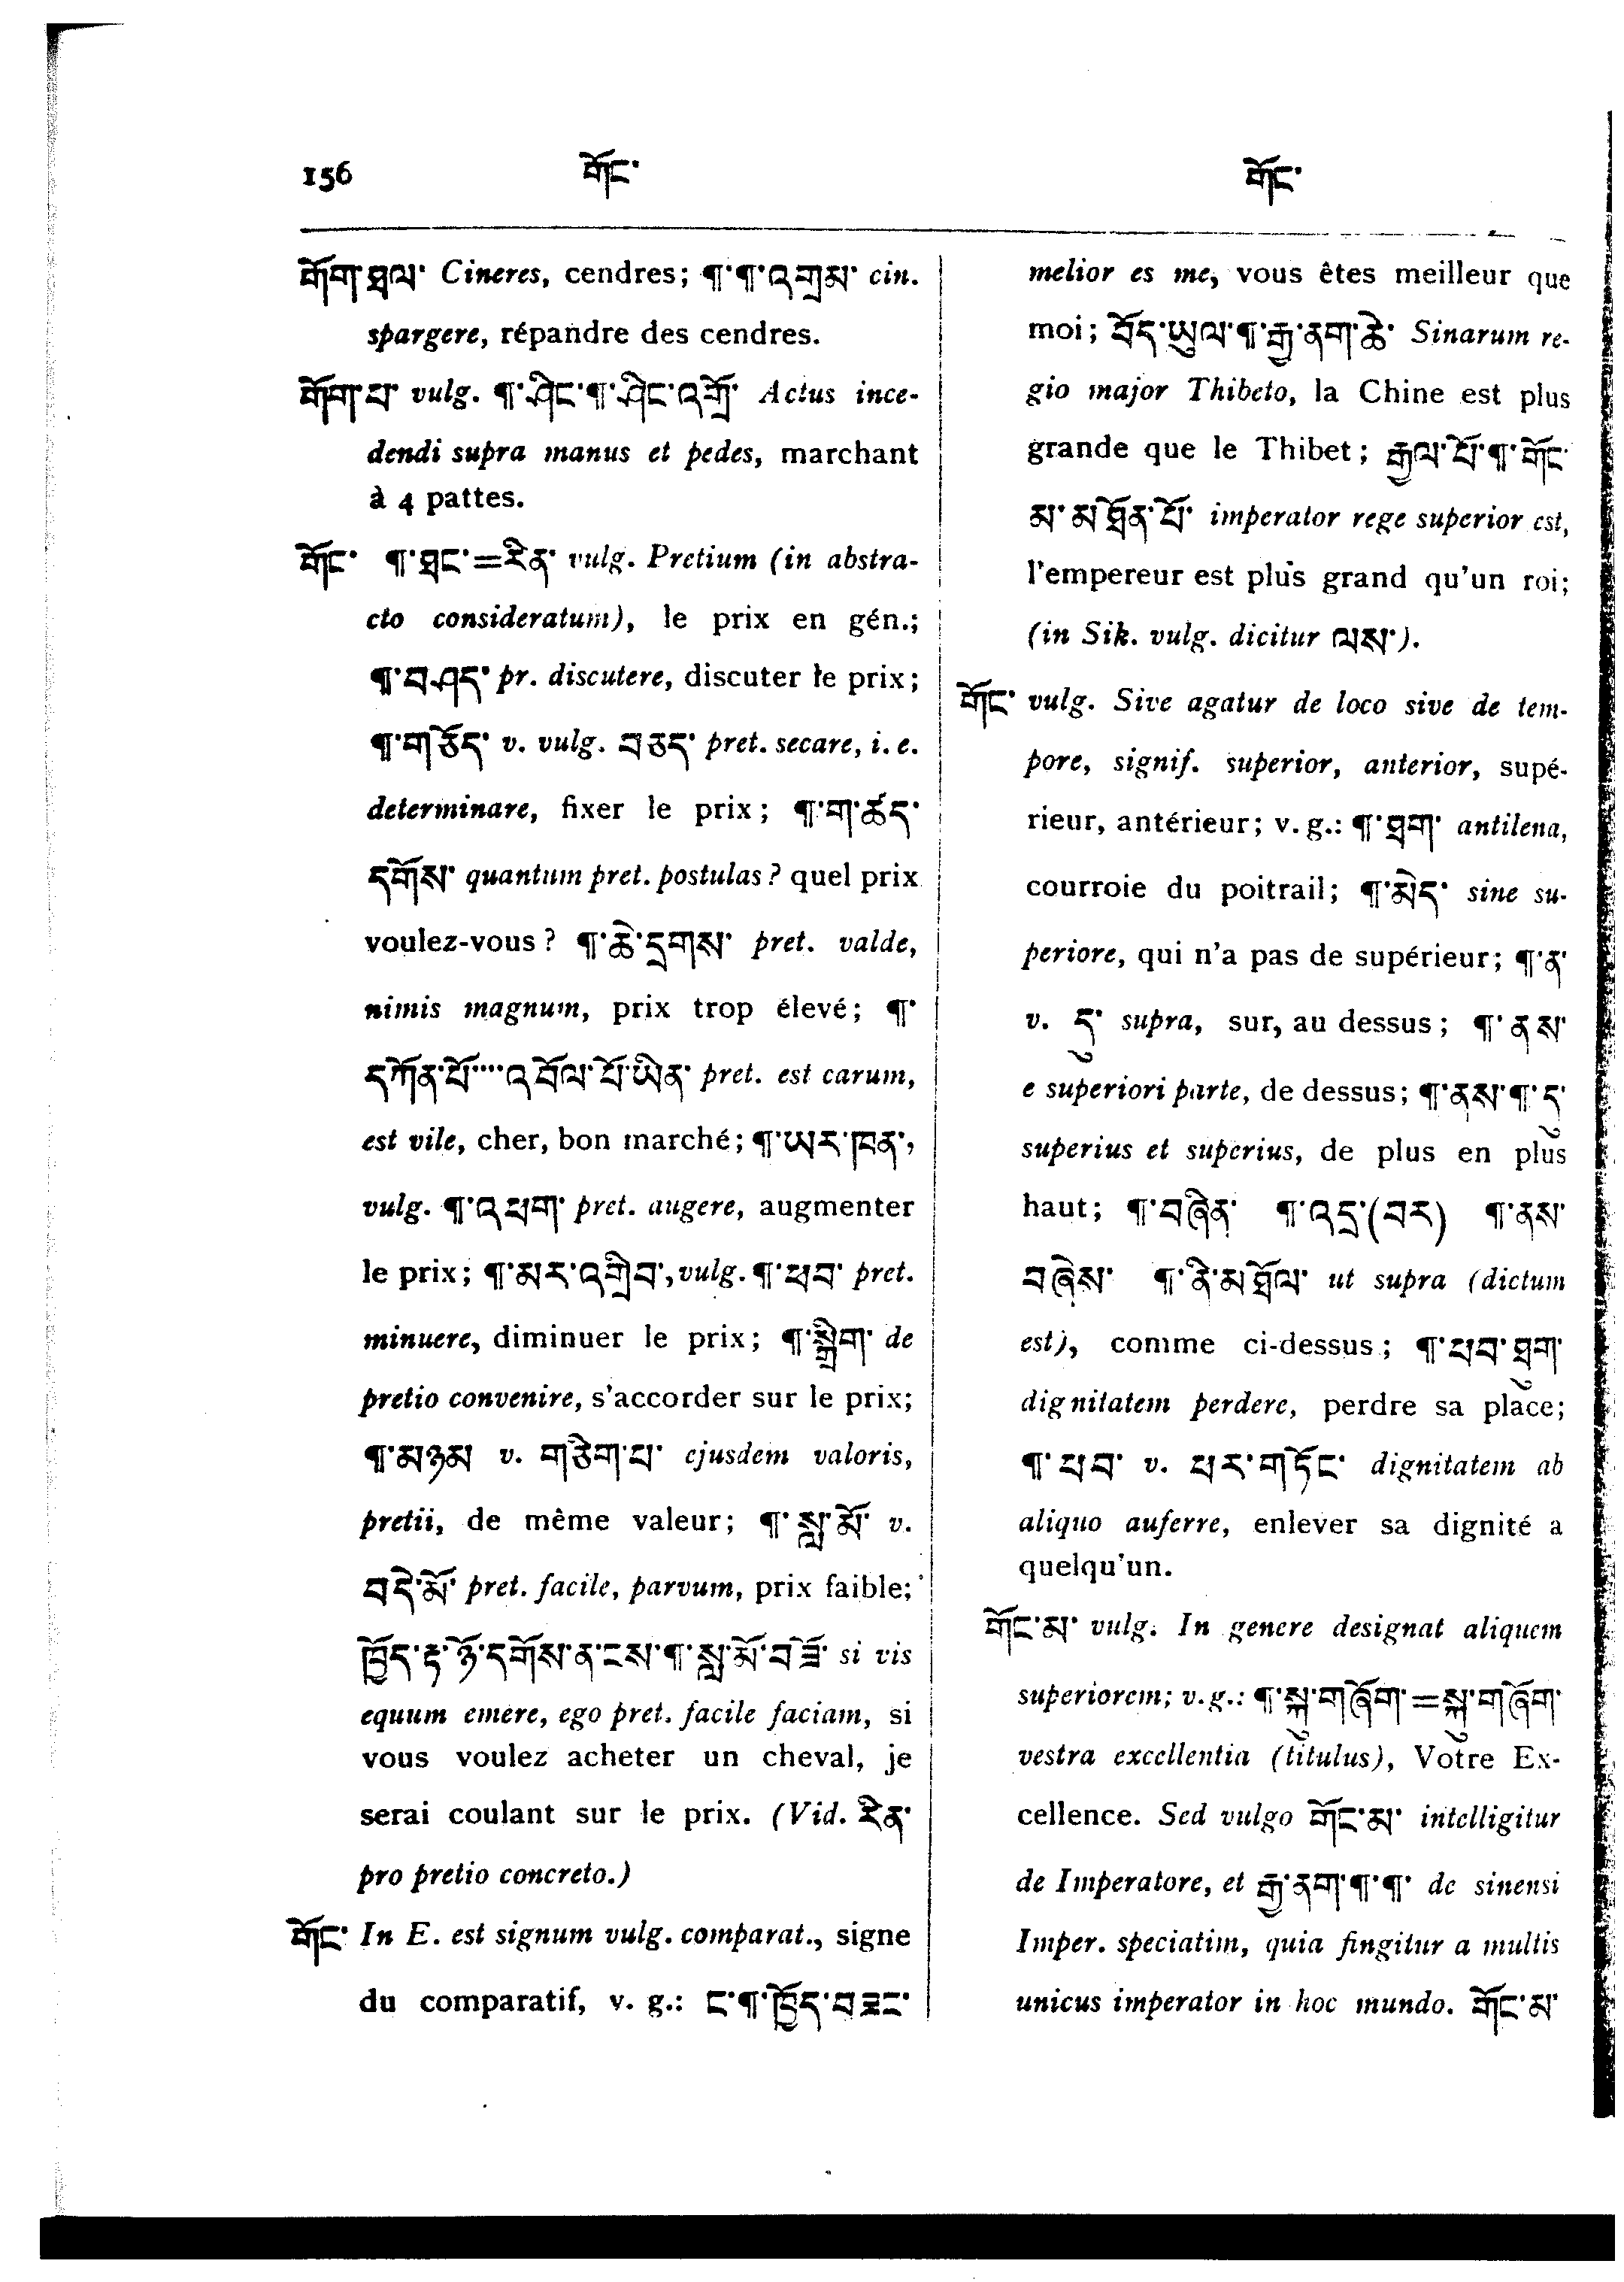 156 གོང་ གོང་
གོག་ཐལ་ Cineres, cendres; ¶་¶་འགྲམ་ cin.
spargere, répandre des cendres.
གོག་པ་ vulg. ¶་ཤིང་¶་ཤིང་འགྲོ་ Actus ince-
dendi supra manus et pedes, marchant
à 4 pattes.
གོང་ ¶་ཐང་=རིན་ vulg. Pretium (in abstra-
cto consideratum), le prix en gén.;
¶་བཤད་ pr. discutere, discuter le prix;
¶་གཅོད་ v. vulg. བཅད་ pret. secare, i. e.
determinare, fixer le prix; ¶་ག་ཚད་
དགོས་ quantum pret. postulas? quel prix
voulez-vous? ¶་ཆེ་དྲགས་ pret. valde,
nimis magnum, prix trop élevé; ¶་
དཀོན་པོ་····འབོལ་པོ་ཡིན་ pret. est carum,
est vile, cher, bon marché; ¶་ཡར་ཁན་,
vulg. ¶་འཕག་ pret. augere, augmenter
le prix; ¶་མར་འགྲིབ་, vulg. ¶་ཕབ་ pret.
minuere, diminuer le prix; ¶་སྒྲིག་ de
pretio convenire, s'accorder sur le prix;
¶་མཉམ v. གཅིག་པ་ ejusdem valoris,
pretii, de même valeur; ¶་སླ་མོ་ v.
བདེ་མོ་ pret. facile, parvum, prix faible;
ཁྱོད་རྟ་ཉོ་དགོས་ན་ངས་¶་སླ་མོ་བཟོ་ si vis
equum emere, ego pret. facile faciam, si
vous voulez acheter un cheval, je
serai coulant sur le prix. (Vid. རིན་
pro pretio concreto.)
གོང་ In E. est signum vulg. comparat., signe
du comparatif, v. g.: ང་¶་ཁྱོད་བཟང་
melior es me, vous êtes meilleur que
moi; བོད་ཡུལ་¶་རྒྱ་ནག་ཆེ་ Sinarum re-
gio major Thibeto, la Chine est plus
grande que le Thibet; རྒྱལ་པོ་¶་གོང་
མ་མཐོན་པོ་ imperator rege superior est,
l'empereur est plus grand qu'un roi;
(in Sik. vulg. dicitur ལས་).
གོང་ vulg. Sive agatur de loco sive de tem-
pore, signif. superior, anterior, supé-
rieur, antérieur; v. g.: ¶་ཐག་ antilena,
courroie du poitrail; ¶་མེད་ sine su-
periore, qui n'a pas de supérieur; ¶་ན་
v. དུ་ supra, sur, au dessus; ¶་ནས་
e superiori parte, de dessus; ¶་ནས་¶་དུ་
superius et superius, de plus en plus
haut; ¶་བཞིན་ ¶་འདྲ་(བར) ¶་ནས་
བཞེས་ ¶་ནི་མཐོལ་ ut supra (dictum
est), comme ci-dessus; ¶་ཕབ་ཐུག་
dignitatem perdere, perdre sa place;
¶་ཕབ་ v. ཕར་གཏོང་ dignitatem ab
aliquo auferre, enlever sa dignité a
quelqu'un.
གོང་མ་ vulg. In genere designat aliquem
superiorem; v. g.: ¶་སྐུ་གཞོག་=སྐུ་གཞོག་
vestra excellentia (titulus), Votre Ex-
cellence. Sed vulgo གོང་མ་ intelligitur
de Imperatore, et རྒྱ་ནག་¶་¶་ de sinensi
Imper. speciatim, quia fingitur a multis
unicus imperator in hoc mundo. གོང་མ་